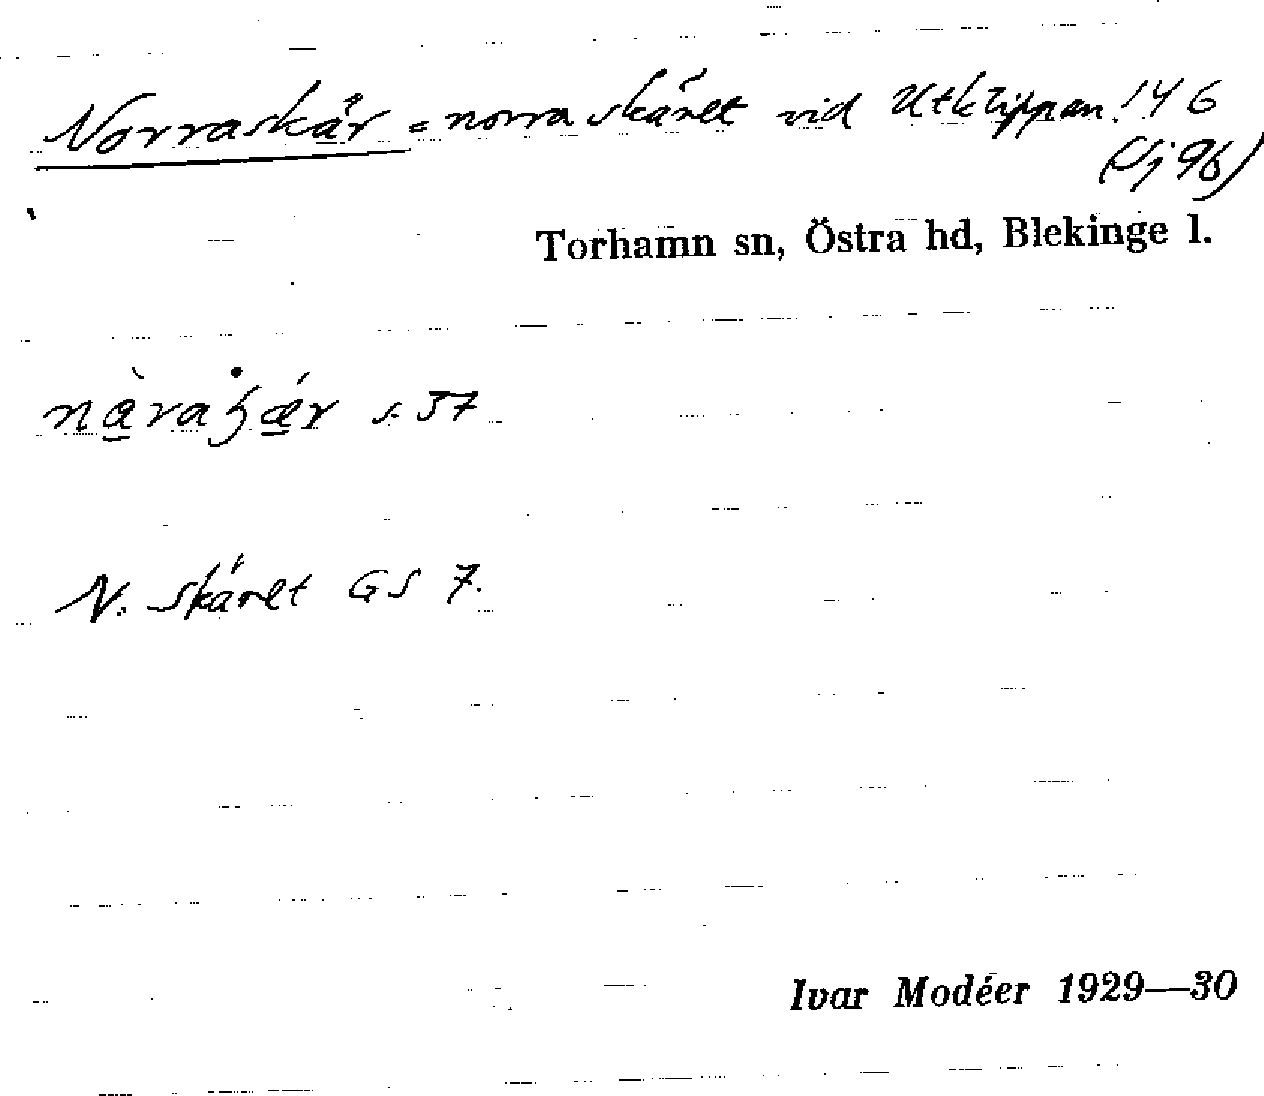 Norraskär = norra skäret vid Utklippan. 146
(Sj 96)
Torhamn sn, Östra hd, Blekinge l.
s. 37
N. skäret GS 7.
Ivar Modéer 1929—30